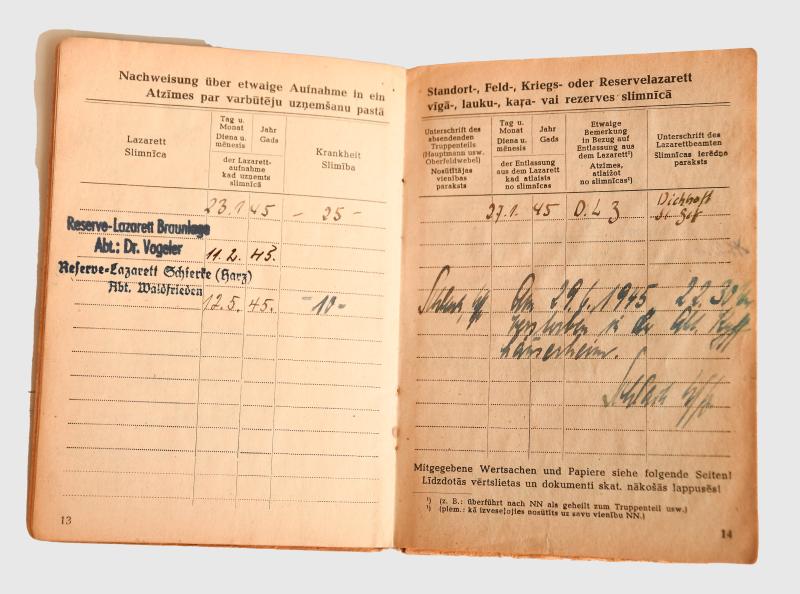 Nachweisung über etwaige Aufnahme in ein
Atzīmes par varbūtēju uzņemšanu pastā
Lazarett
Slimnīca
Tag u.
Monat
Diena u.
mēnesis
Jahr
Gads
der Lazarett-
aufnahme
kad uzņemts
slimnīcā
Krankheit
Slimība
23.1 45 – 25 –
Reserve-Lazarett Braunlage
Abt.: Dr. Vogeler
11.2. 45.
Reserve-Lazarett Schierke (Harz)
Abt. Waldfrieden
12.5. 45. - 10 -
13
Standort-, Feld-, Kriegs- oder Reservelazarett
vīgā-, lauku-, kaŗa- vai rezerves slimnīcā
Unterschrift des
absendenden
Truppenteils
(Hauptmann usw.
Oberfeldwebel)
Nosūtītājas
vienības
paraksts
Tag u.
Monat
Diena u.
mēnesis
Jahr
Gads
der Entlassung
aus dem Lazarett
kad atlaists
no slimnīcas
Etwaige
Bemerkung
in Bezug auf
Entlassung aus
dem Lazarett¹)
Atzīmes,
atlaižot
no slimnīcas¹)
Unterschrift des
Lazarettbeamten
Slimnīcas ierēdņa
paraksts
27.1. 45 D.L 3
Am 29.6.1945 22.30
gestorben in der
Mitgegebene Wertsachen und Papiere siehe folgende Seiten!
Līdzdotās vērtslietas un dokumenti skat. nākošās lappusēs!
¹) (z. B.: überführt nach NN als geheilt zum Truppenteil usw.)
¹) (piem.: kā izveseļojies nosūtīts uz savu vienību NN.)
14